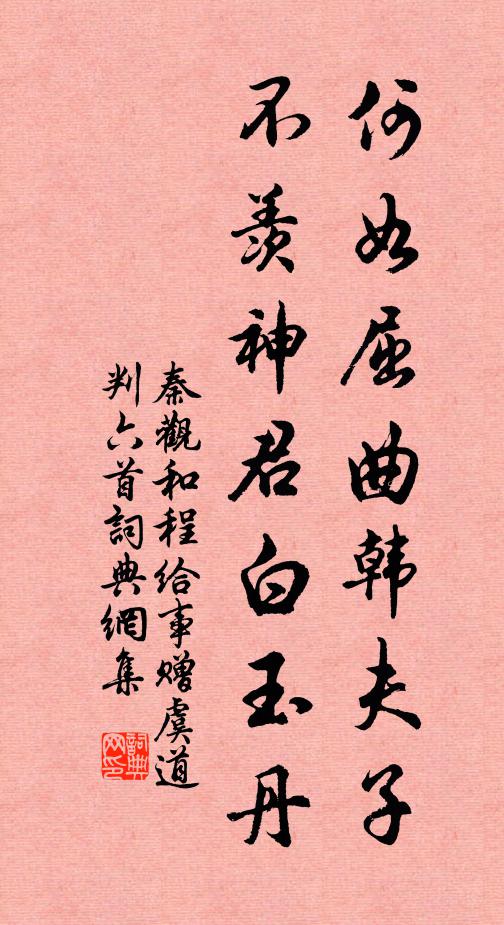 何如屈曲韩夫子
不羡神君白玉丹
秦觀和程给事赠虞道
判六首詞典網集
詞典网印